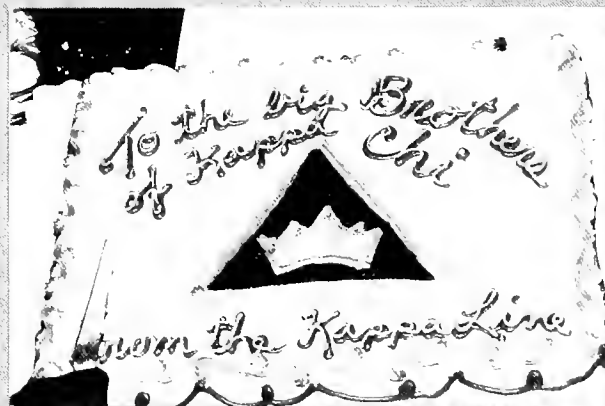 To the big Brothers
of Kappa Chi
from the Kappa Line